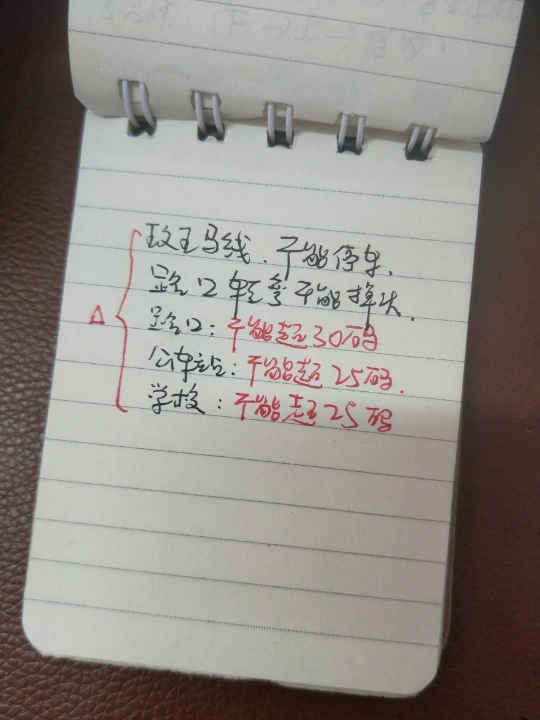 斑马线、不能停车.
路口转弯不能掉头.
路口：不能超30码
公车站：不能超25码.
学校：不能超25码